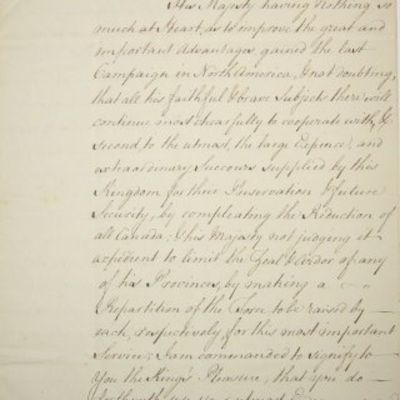 His Majesty having Nothing so
much at Heart, as to improve the great and
important Advantages gained the last
Campaign in North America, & not doubting,
that all his faithful & brave Subjects there will
continue most chearfully to cooperate with, &
second to the utmost, the large Expence, and
extraordinary Succours supplied by this
Kingdom for their Preservation & future
Security, by compleating the Reduction of
all Canada; & his Majesty not judging it
expedient to limit the Zeal & Ardor of any
of his Provinces, by making a
Repartition of the Force to be raised by
each, respectively, for this most important
Service; I am commanded to signify to
You the King's Pleasure, that you do